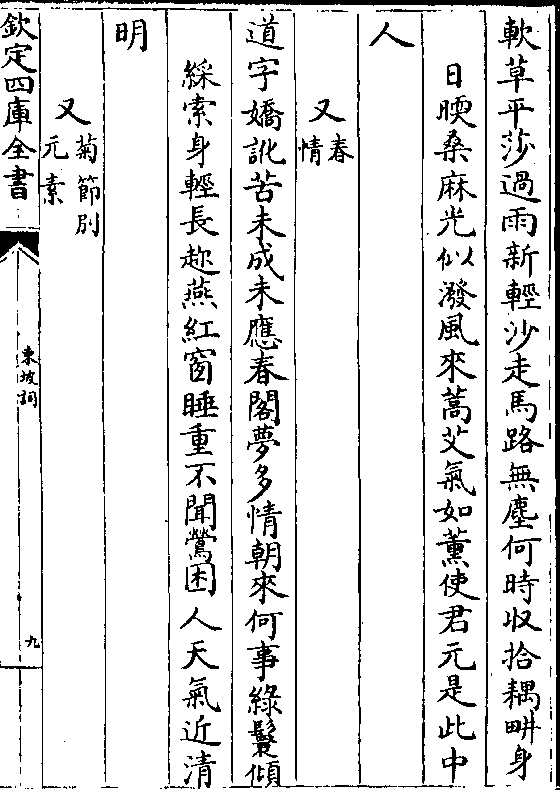 軟草平莎過雨新輕沙走馬路無塵何時收拾耦畊身
日暖桑麻光似潑風來蒿艾氣如薰使君元是此中
人
又春情
道字嬌訛苦未成未應春閣夢多情朝來何事綠鬟傾
綵索身輕長趂燕紅窗睡重不聞鶯困人天氣近清
明
又菊節別元素
欽定四庫全書
東坡詞
九